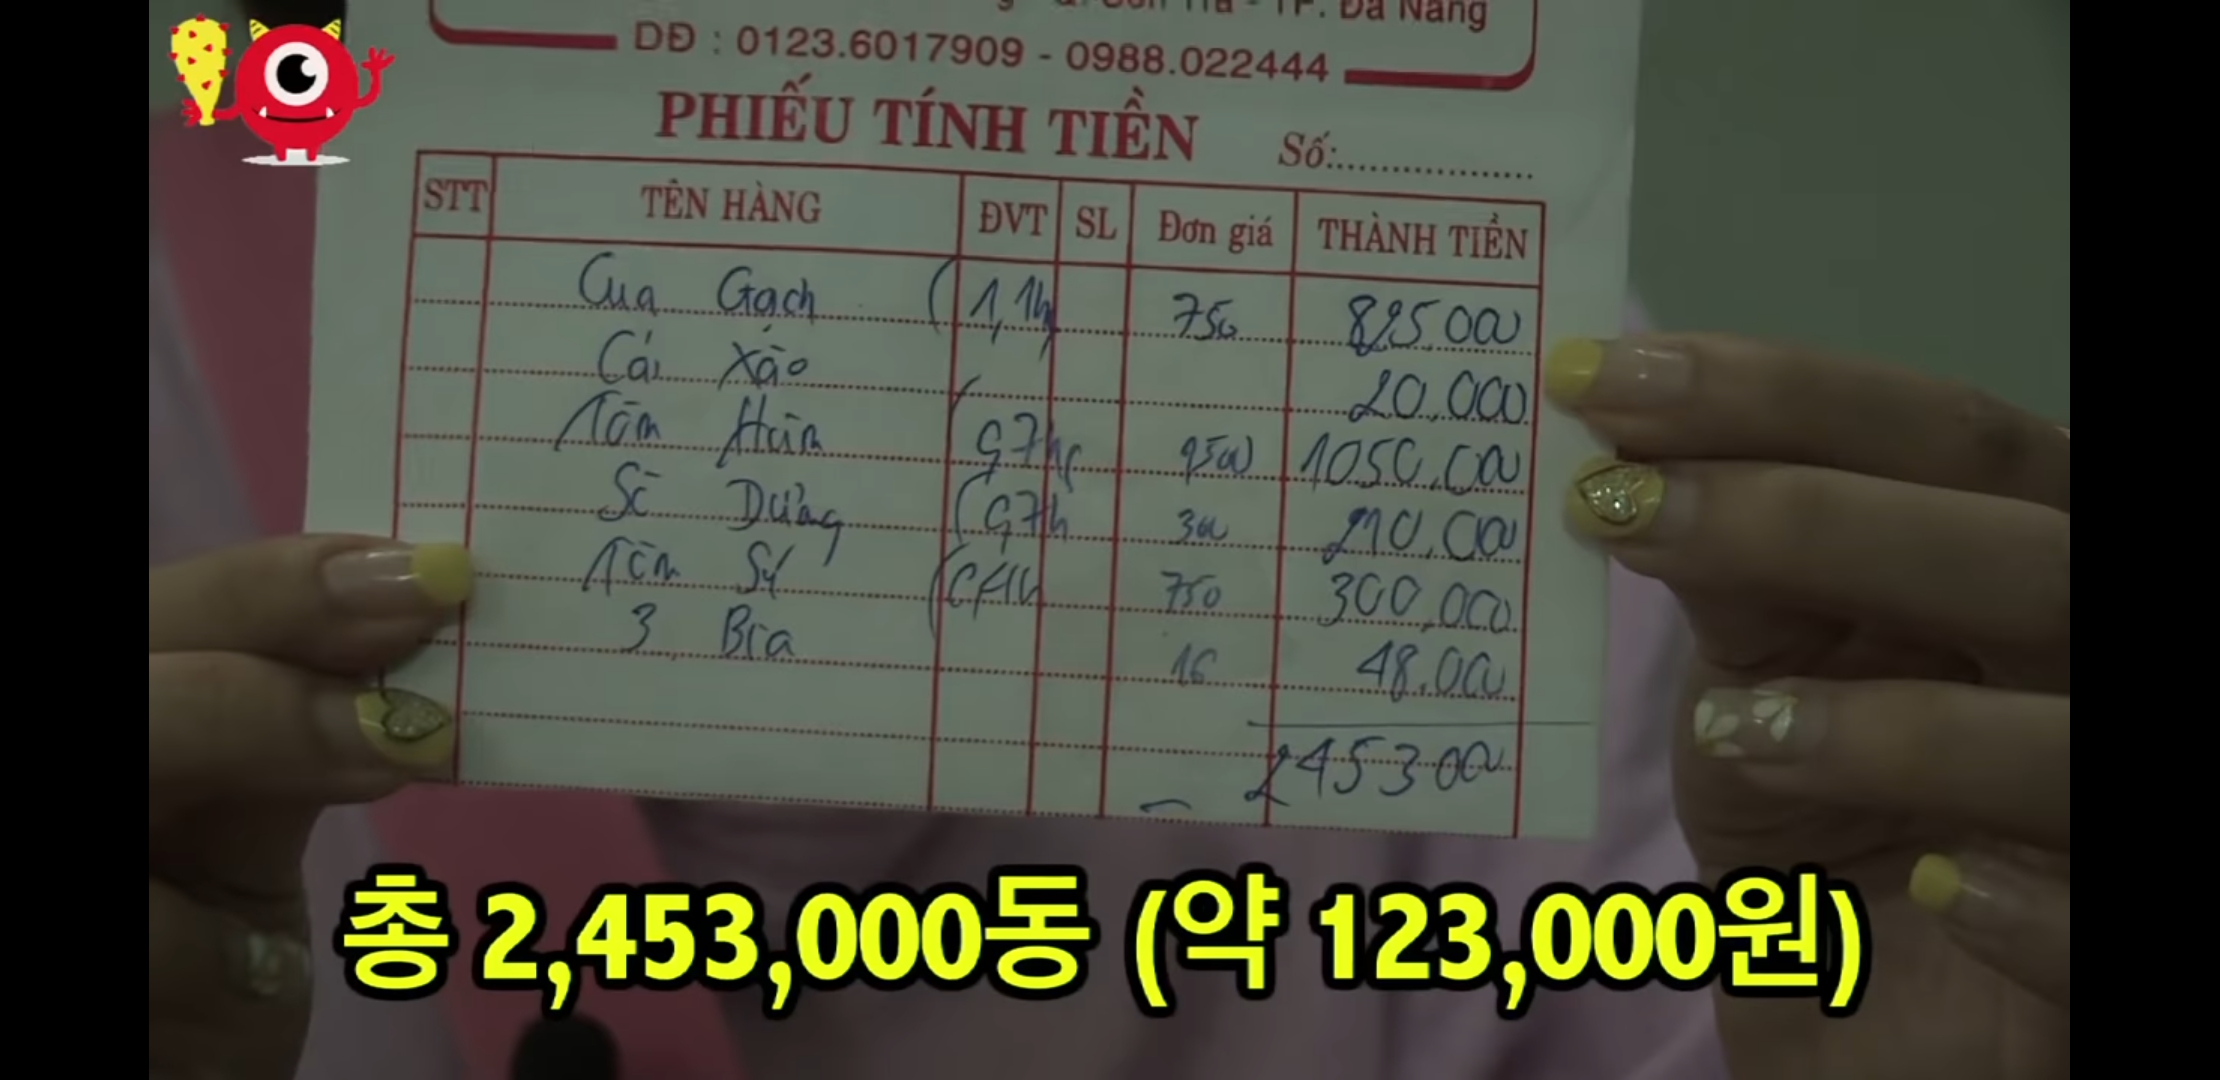 TP. Đà Nẵng
DĐ : 0123.6017909 - 0988.022444
PHIẾU TÍNH TIỀN Số:
STT TÊN HÀNG ĐVT SL Đơn giá THÀNH TIỀN
Cua Gạch (1,1k) 750 825.000
Cải Xào 20,000
Tôm Hùm 1050.000
Sò Dương (0,7k 300 210.000
Tôm Sú (0,4k 750 300,000
3 Bia 16 48.000
2453000
총 2,453,000동 (약 123,000원)